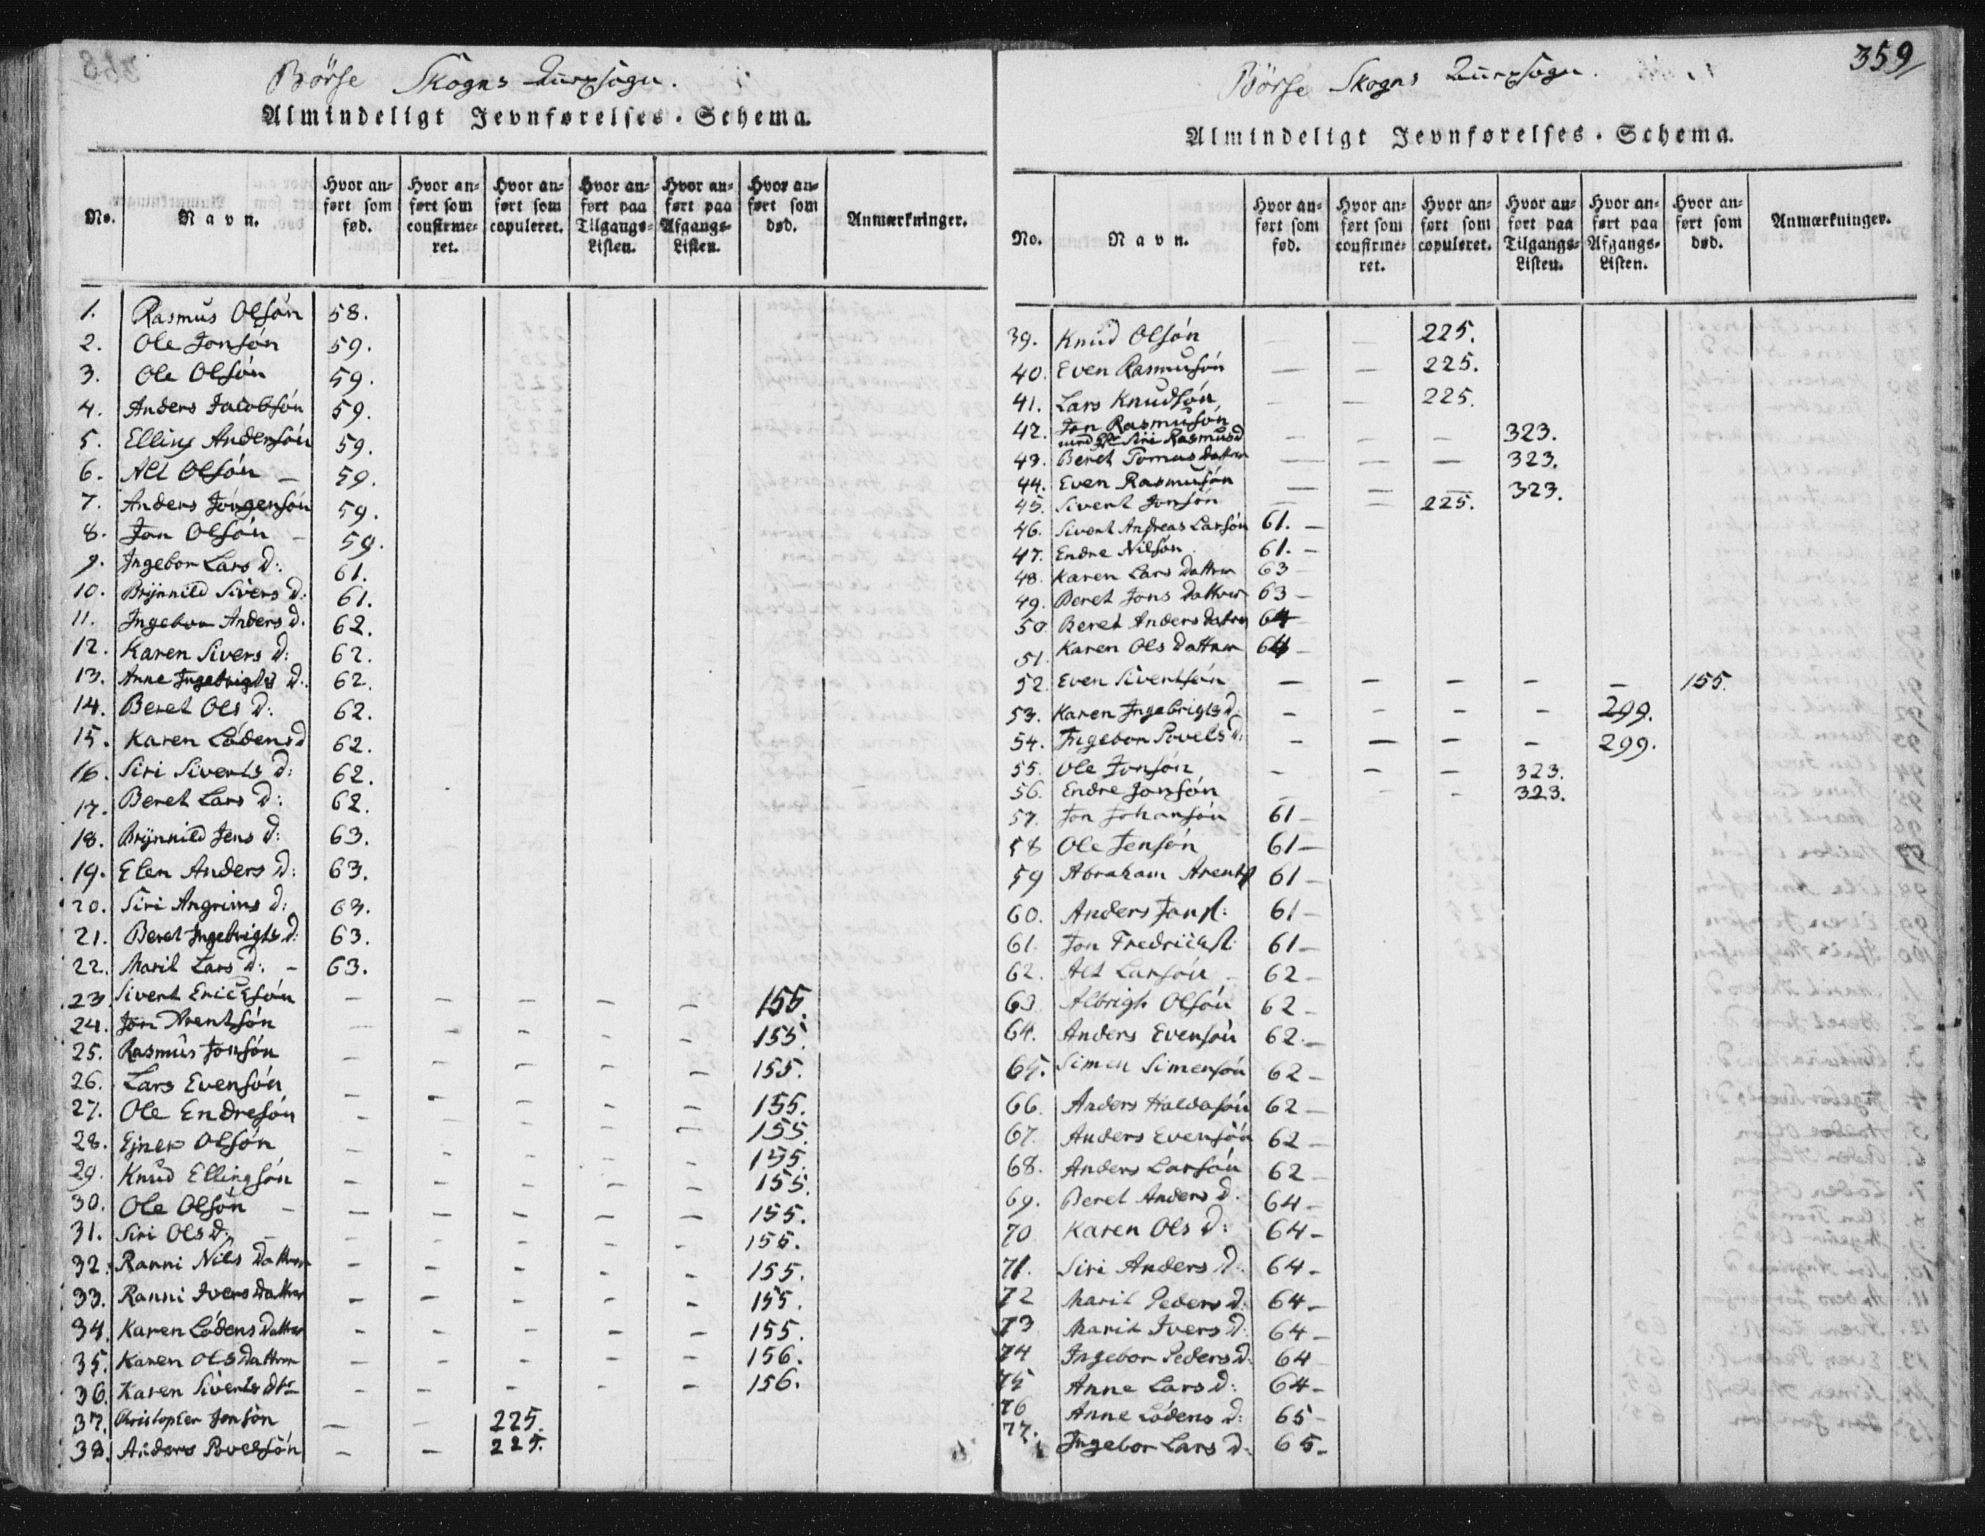 Börse Skogns
Almindeligt Jevnførelses-Schema.
No. Navn. Hvor anført som fød. Hvor anført som confirmeret. Hvor anført som copuleret. Hvor anført paa Tilgangs-Listen. Hvor anført paa Afgangs-Listen. Hvor anført som død. Anmærkninger.
1. Rasmus Olsón 58.
2. Ole Jonsón 59.
3. Ole Olsón 59.
4. Anders Jacobsón 59.
5. Elling Andersón 59.
6. Alt Olsón – 59.
7. Anders Jörgensón 59.
8. Jon Olsón – 59.
9. Ingebor Lars d: 61.
10. Brÿnnild Sivers d: 61.
11. Ingebor Anders d. 62.
12. Karen Sivers d: 62.
13. Anne Ingebrigts d. 62.
14. Beret Ols d: 62.
15. Karen Lódens d 62.
16. Siri Siverts d: 62.
17. Beret Lars d: 62.
18. Brÿnnild Jens d: 63.
19. Elen Anders d: 63.
20. Siri Angrims d: 63.
21. Beret Ingebrigts d: 63.
22. Marit Lars d: – 63.
23 Sivert Ericksón – – – – – 155.
24. Jon Arentsón – – – – – 155.
25. Rasmus Jonsón – – – – – 155.
26. Lars Evensón – – – – – 155.
27. Ole Endresón – – – – – 155
28. Ejner Olsón – – – – – 155
29. Knud Ellingsón – – – – – 155.
30. Ole Olsón – – – – – – 155.
31. Siri Ols d: – – – – – – 155.
32. Ranni Nils dattrer – – – – – 155.
33. Ranni Ivers dattrer – – – – – 155.
34. Karen Lódens dattrer – – – – – 155.
35. Karen Ols dattrer – – – – – 156.
36. Karen Siverts dtr – – – – – 156.
37. Christopher Jonsón – – 225.
38. Anders Povelsón – – 225.
359
Börse Skogns
Almindeligt Jevnførelses-Schema.
No. Navn. Hvor anført som fød. Hvor anført som confirmeret. Hvor anført som copuleret. Hvor anført paa Tilgangs-Listen. Hvor anført paa Afgangs-Listen. Hvor anført som død. Anmærkninger.
39. Knud Olsón – – 225.
40. Even Rasmusón – – 225.
41. Lars Knudsón – – 225.
42. Jon Rasmusón
Siri Rasmusd – – – 323.
43. Beret Tomas dattrer – – – 323.
44. Even Rasmusón – – – 323.
45. Sivert Jonsón – – 225.
46. Sivert Andreas Larsón 61. –
47. Endre Nilsón 61. –
48. Karen Lars dattrer 63 –
49. Beret Jons dattrer 63 –
50. Beret Anders datrer 64
51. Karen Ols dattrer 64
52. Even Sivertsón – – – – – 155.
53. Karen Ingebrigts d. – – – – 299.
54. Ingebor Povels d: – – – – 299.
55. Ole Jonsón – – – 323.
56. Endre Jonsón – – – 323.
57. Jon Johansón 61 –
58 Ole Jensón 61 –
59 Abraham Arents 61 –
60. Anders Jons: 61 –
61. Jon Fredricks: 61 –
62. Alt Larsón – 62 –
63. Albrigh Olsón 62 –
64. Anders Evensón 62. –
65. Simen Simensón 62 –
66. Anders Haldosón 62 –
67. Anders Evensón 62 –
68. Anders Larsón 62 –
69. Beret Anders d. 64 –
70 Karen Ols d: 64 –
71. Siri Anders d. 64 –
72 Marit Peders d. 64 –
73 Marit Ivers d. 64 –
74 Ingebor Peders d. 64 –
75 Anne Lars d: 64 –
76 Anne Lódens d: 65 –
77. Ingebor Lars d. 65 –